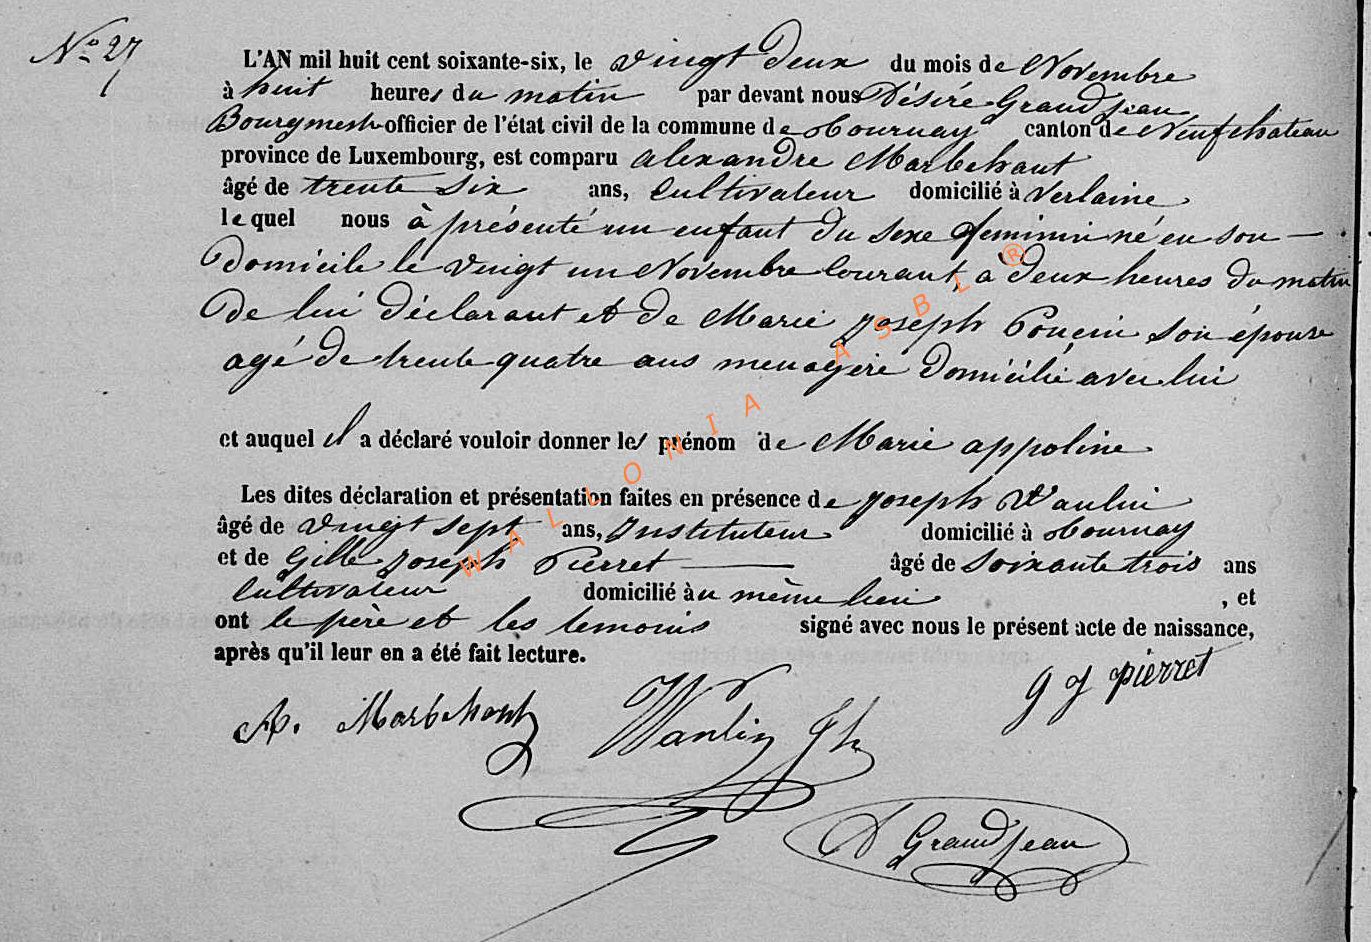 N° 27
L'AN mil huit cent soixante-six, le vingt deux du mois de Novembre
à huit heures du matin par devant nous Désiré GrandJean
Bourgmestre officier de l'état civil de la commune de Tournay canton de Neufchateau
province de Luxembourg, est comparu alexandre Marbehant
âgé de trente six ans, Cultivateur domicilié à Verlaine
lequel nous à présenté un enfant du sexe feminin né en son
domicile le vingt un Novembre Courant, à deux heures du matin
de lui déclarant et de Marie Joseph Poncin son épouse
agé de trente quatre ans menagère domicilié avec lui
et auquel il a déclaré vouloir donner les prénom de Marie appoline
Les dites déclaration et présentation faites en présence de Joseph Wanlin
âgé de vingt sept ans, Instituteur domicilié à Tournay
et de Gille Joseph Pierret âgé de soixante trois ans
Cultivateur domicilié au même lieu , et
ont le père et les temoins signé avec nous le présent acte de naissance,
après qu'il leur en a été fait lecture.
A. Marbehant Wanlin Jh g J pierret
D GrandJean
WALLONIA ASBL ®